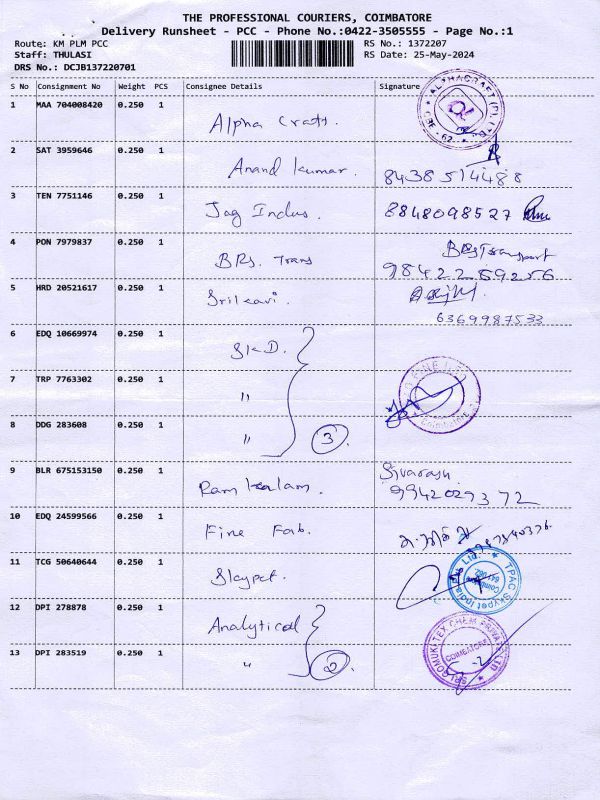 THE PROFESSIONAL COURIERS, COIMBATORE
Delivery Runsheet - PCC - Phone No.:0422-3505555 - Page No.:1
Route: KM PLM PCC RS No.: 1372207
Staff: THULASI RS Date: 25-May-2024
DRS No.: DCJB137220701
S No Consignment No Weight PCS Consignee Details Signature
1 MAA 704008420 0.250 1 Alpha Craft.
2 SAT 3959646 0.250 1 Anand kumar. 8438514488
3 TEN 7751146 0.250 1 Jag Indus. 8848098527
4 PON 7979837 0.250 1 BRS. Trans BRS Transport
9842289256
5 HRD 20521617 0.250 1 Srikavi.
6369987533
6 EDQ 10669974 0.250 1 S.K.D.
7 TRP 7763302 0.250 1 "
8 DDG 283608 0.250 1 " 3
9 BLR 675153150 0.250 1 Ram kalam. Sivarasu
9942029372
10 EDQ 24599566 0.250 1 Fine Fab.
11 TCG 50640644 0.250 1 Skypet. TPAC Skypet India Pvt Ltd.
12 DPI 278878 0.250 1 Analytical
13 DPI 283519 0.250 1 " 2 SRI GOMUKI TEX CHEM PRIVATE LTD
COIMBATORE